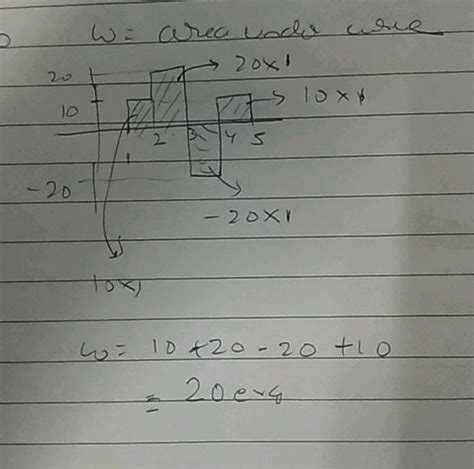 W = area under curve
20
→ 20x1
10
→ 10x1
2 3 4 5
-20
-20x1
10x1
W = 10 + 20 - 20 + 10
= 20erg